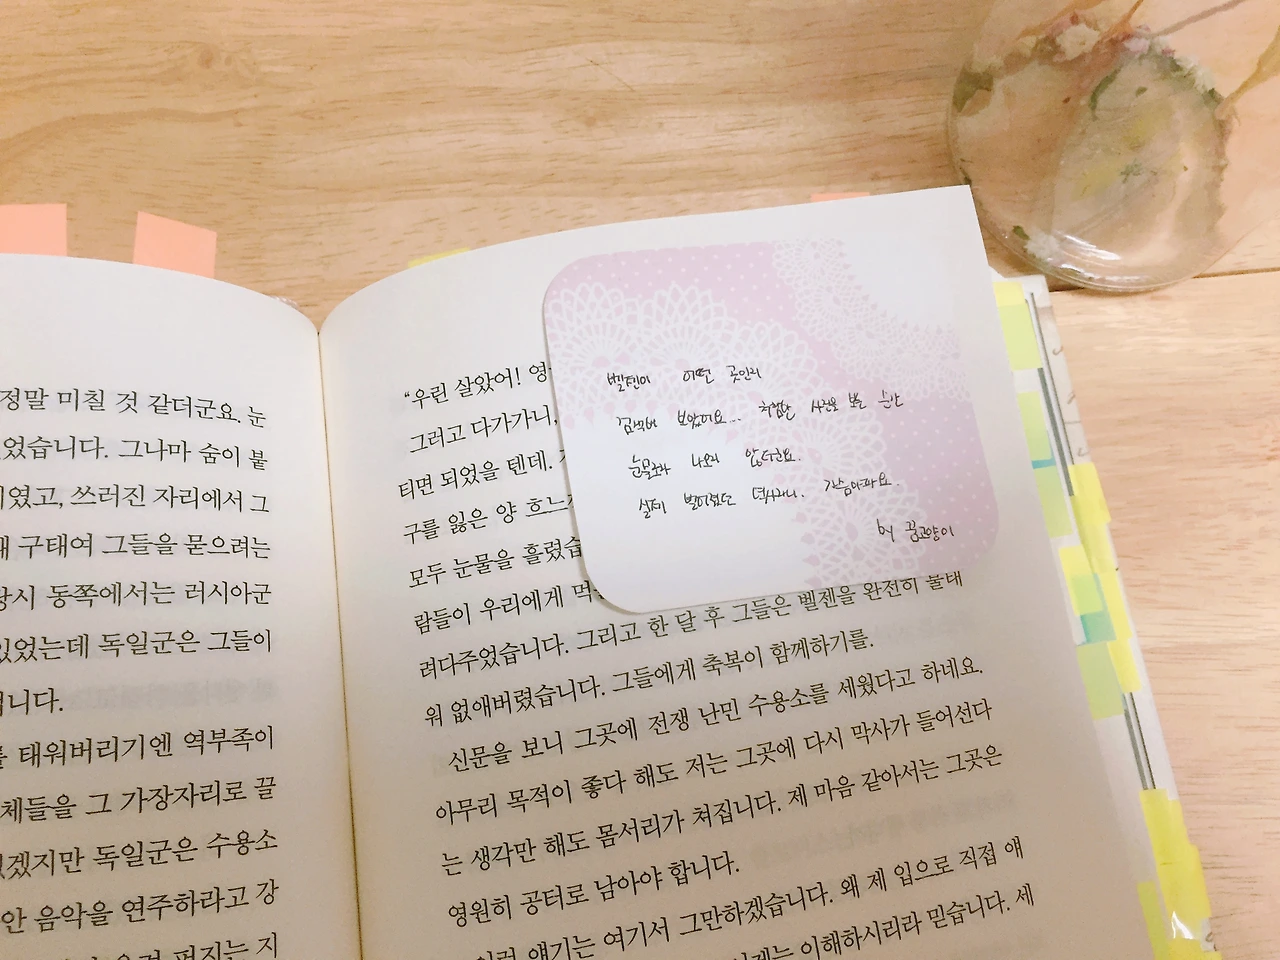 정말 미칠 것 같더군요. 눈
었습니다. 그나마 숨이 붙
이었고, 쓰러진 자리에서 그
구태여 그들을 묻으려는
당시 동쪽에서는 러시아군
있었는데 독일군은 그들이
니다.
를 태워버리기엔 역부족이
체들을 그 가장자리로 끌
겠지만 독일군은 수용소
안 음악을 연주하라고 강
“우린 살았어! 영
그러고 다가가니,
티면 되었을 텐데.
구를 잃은 양 흐느
모두 눈물을 흘렸습
람들이 우리에게 먹
려다주었습니다. 그리고 한 달 후 그들은 벨젠을 완전히 불태
워 없애버렸습니다. 그들에게 축복이 함께하기를.
신문을 보니 그곳에 전쟁 난민 수용소를 세웠다고 하네요.
아무리 목적이 좋다 해도 저는 그곳에 다시 막사가 들어선다
는 생각만 해도 몸서리가 쳐집니다. 제 마음 같아서는 그곳은
영원히 공터로 남아야 합니다.
이런 얘기는 여기서 그만하겠습니다. 왜 제 입으로 직접 얘
이해하시리라 믿습니다. 세
벨젠이 어떤 곳인지
검색해 보았어요... 처참한 사진을 보는 순간
눈물조차 나오지 않더군요.
실제 벌어졌던 역사라니. 가슴아파요.
by 꿈고양이